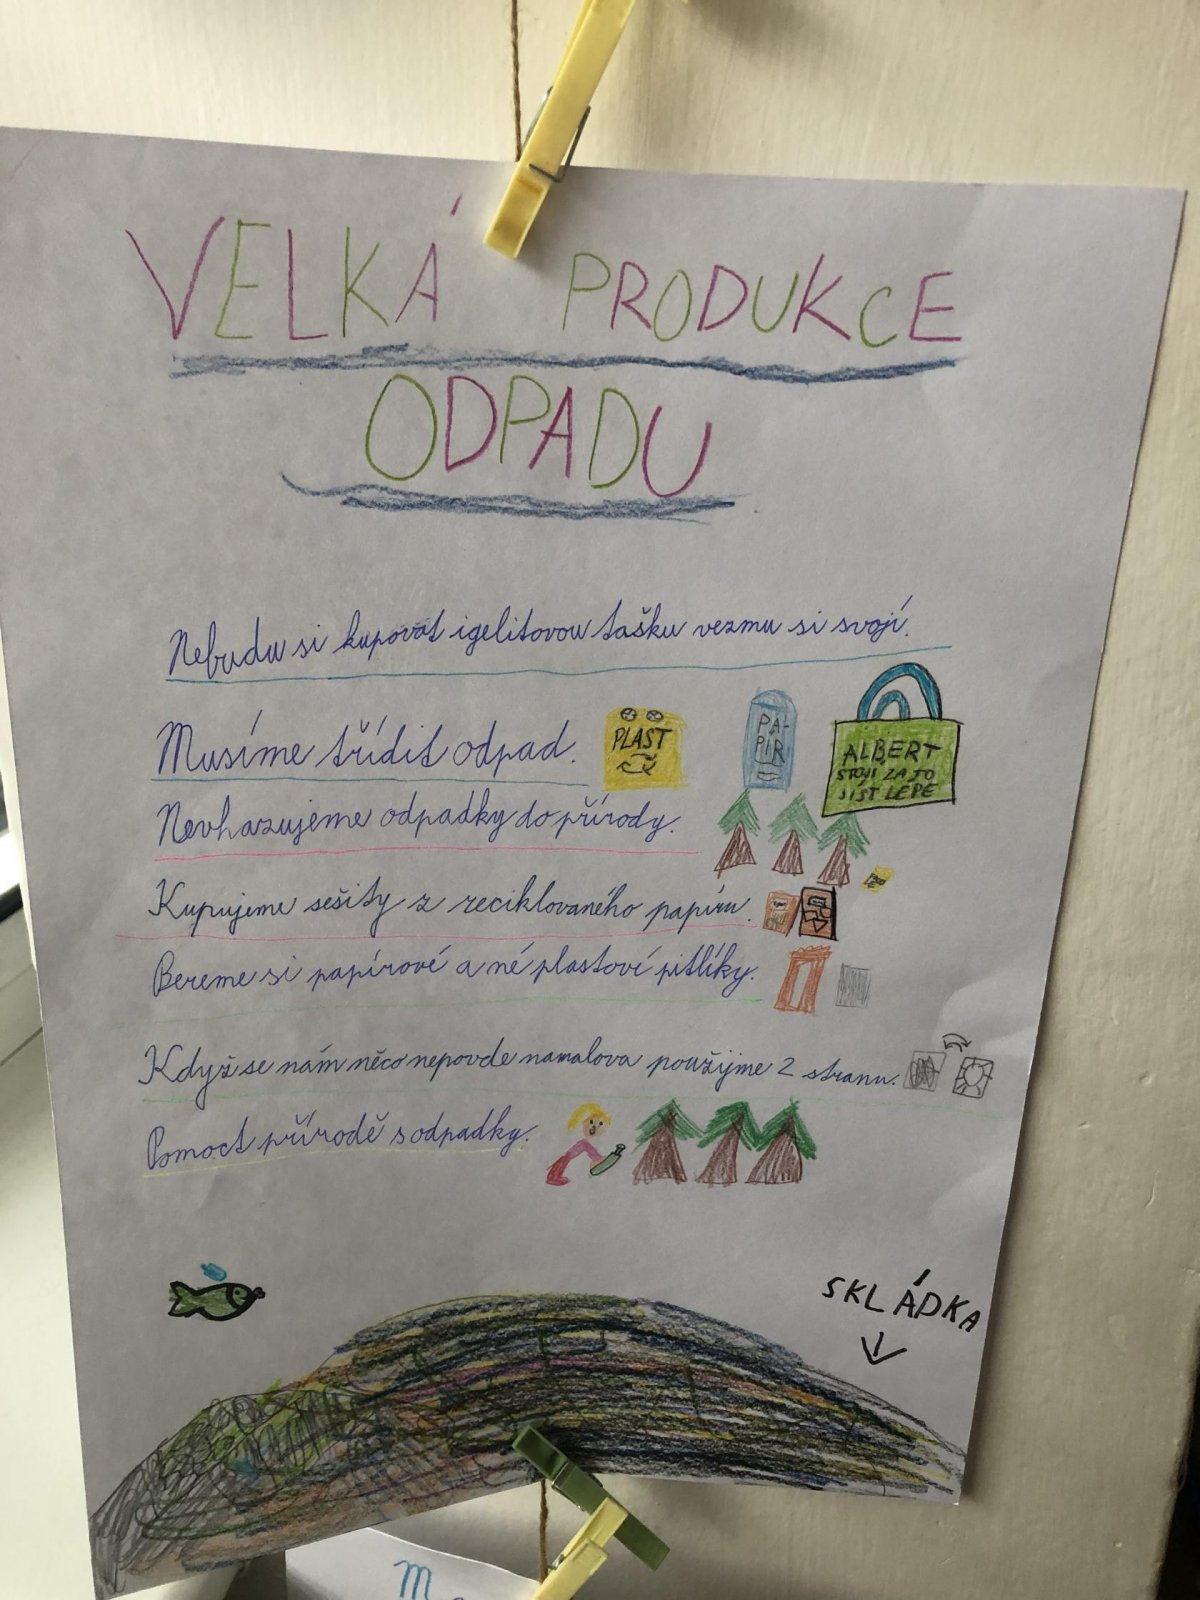 VELKÁ PRODUKCE
ODPADU
Nebudu si kupovat igelitovou tašku vezmu si svojí.
Musíme třídit odpad.
PLAST
PA-
PIR
ALBERT
STOJÍ ZA TO
JÍST LÉPE
Nevhazujeme odpadky do přírody.
Kupujeme sešity z reciklovaného papíru.
Bereme si papírové a né plastoví pitlíky.
Když se nám něco nepovde namalova použijme 2 stranu.
Pomoct přírodě s odpadky.
SKLÁDKA
M